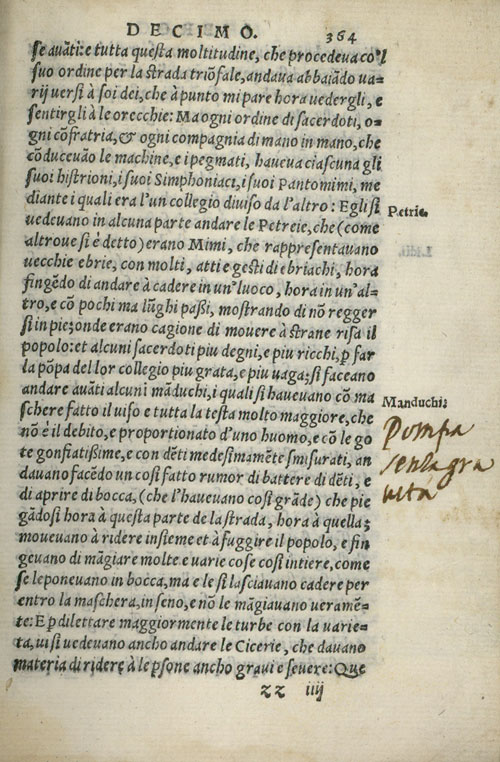 DECIMO. 364
se auāti: e tutta questa moltitudine, che procedeua co'l
suo ordine per la strada triōfale, andaua abbaiādo ua-
rij uersi à soi dei, che à punto mi pare hora uedergli, e
sentirgli à le orecchie: Ma ogni ordine di sacerdoti, o-
gni cōfratria, & ogni compagnia di mano in mano, che
cōduceuāo le machine, e i pegmati, haueua ciascuna gli
suoi histrioni, i suoi Simphoniaci, i suoi Pantomimi, me
diante i quali era l'un collegio diuiso da l'altro: Egli si
uedeuano in alcuna parte andare le Petreie, che (come
altroue si è detto) erano Mimi, che rappresentauano
uecchie ebrie, con molti, atti e gesti di ebriachi, hora
fingēdo di andare à cadere in un'luoco, hora in un'al-
tro, e cō pochi ma lūghi passi, mostrando di nō regger
si in pie: onde erano cagione di mouere à strane risa il
popolo: et alcuni sacerdoti piu degni, e piu ricchi, p far
la pōpa del lor collegio piu grata, e piu uaga; si faceano
andare auāti alcuni māduchi, i quali si haueuano cō ma
schere fatto il uiso e tutta la testa molto maggiore, che
nō è il debito, e proportionato d'uno huomo, e cō le go
te gonfiatißime, e con dēti medesimamēte smisurati, an
dauano facēdo un cosi fatto rumor di battere di dēti, e
di aprire di bocca, (che l'haueuano cosi grāde) che pie
gādosi hora à questa parte de la strada, hora à quella;
moueuano à ridere insieme et à fuggire il popolo, e fin
geuano di māgiare molte e uarie cose cosi intiere, come
se le poneuano in bocca, ma e le si lasciauano cadere per
entro la maschera, in seno, e nō le māgiauano ueramē-
te: E p dilettare maggiormente le turbe con la uarie-
ta, ui si uedeuano ancho andare le Cicerie, che dauano
materia di ridere à le psone ancho graui e seuere: Que
zz iiij
Petrie.
Manduchi:
Pompa
senza gra
uità